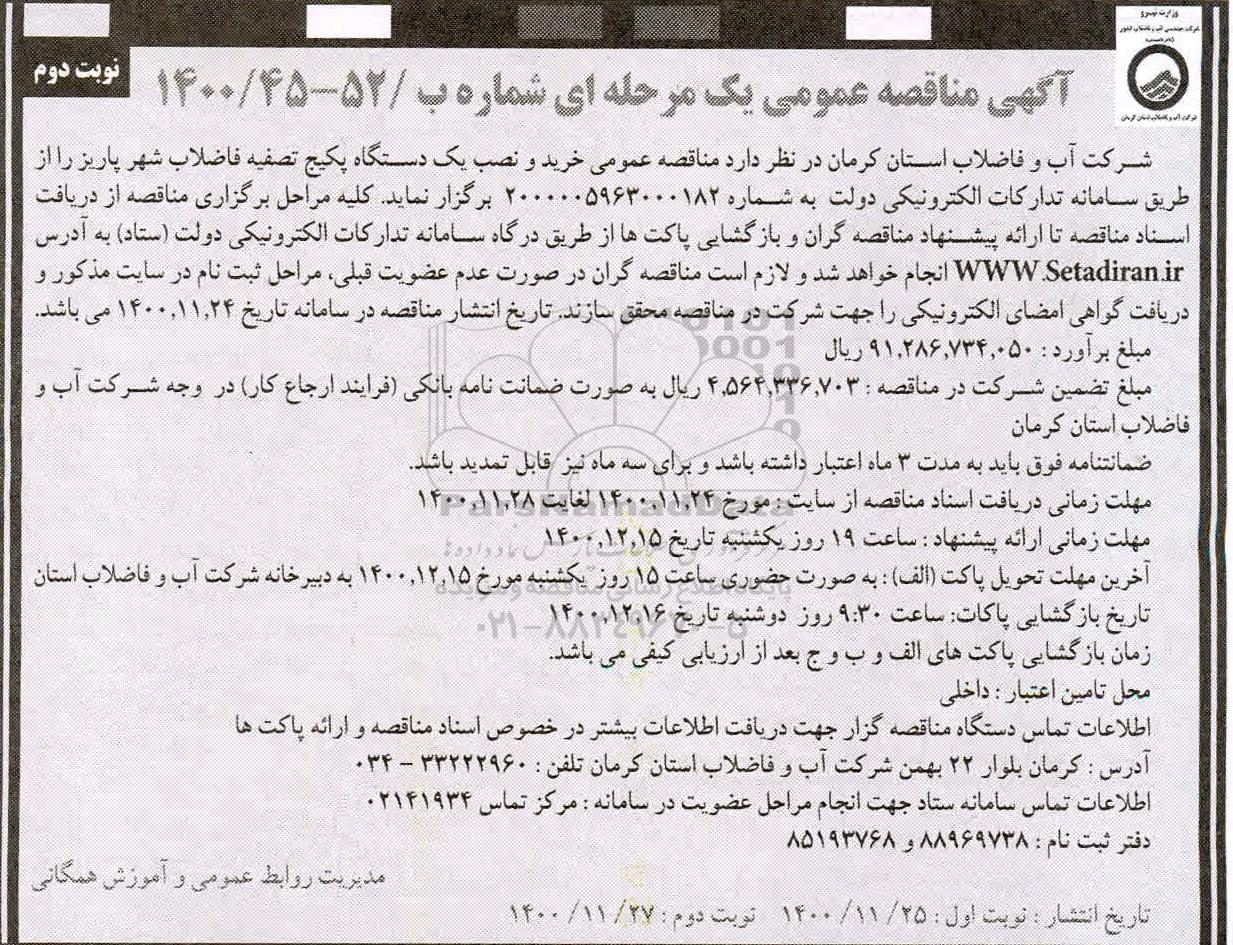 وزارت نیرو
شرکت مهندسی آب و فاضلاب کشور
شرکت آب و فاضلاب استان کرمان
نوبت دوم
آگهی مناقصه عمومی یک مرحله ای شماره ب /۵۲-۱۴۰۰/۴۵
شرکت آب و فاضلاب استان کرمان در نظر دارد مناقصه عمومی خرید و نصب یک دستگاه پکیج تصفیه فاضلاب شهر پاریز را از
طریق سامانه تدارکات الکترونیکی دولت به شماره ۲۰۰۰۰۰۵۹۶۳۰۰۰۱۸۲ برگزار نماید. کلیه مراحل برگزاری مناقصه از دریافت
اسناد مناقصه تا ارائه پیشنهاد مناقصه گران و بازگشایی پاکت ها از طریق درگاه سامانه تدارکات الکترونیکی دولت (ستاد) به آدرس
WWW.Setadiran.ir انجام خواهد شد و لازم است مناقصه گران در صورت عدم عضویت قبلی، مراحل ثبت نام در سایت مذکور و
دریافت گواهی امضای الکترونیکی را جهت شرکت در مناقصه محقق سازند. تاریخ انتشار مناقصه در سامانه تاریخ ۱۴۰۰,۱۱,۲۴ می باشد.
مبلغ برآورد : ۹۱,۲۸۶,۷۳۴,۰۵۰ ریال
مبلغ تضمین شرکت در مناقصه : ۴,۵۶۴,۳۳۶,۷۰۳ ریال به صورت ضمانت نامه بانکی (فرایند ارجاع کار) در وجه شرکت آب و
فاضلاب استان کرمان
ضمانتنامه فوق باید به مدت ۳ ماه اعتبار داشته باشد و برای سه ماه نیز قابل تمدید باشد.
مهلت زمانی دریافت اسناد مناقصه از سایت : مورخ ۱۴۰۰,۱۱,۲۴ لغایت ۱۴۰۰,۱۱,۲۸
ParsNamadData
مهلت زمانی ارائه پیشنهاد : ساعت ۱۹ روز یکشنبه تاریخ ۱۴۰۰,۱۲,۱۵
آخرین مهلت تحویل پاکت (الف) : به صورت حضوری ساعت ۱۵ روز یکشنبه مورخ ۱۴۰۰,۱۲,۱۵ به دبیرخانه شرکت آب و فاضلاب استان
پایگاه اطلاع رسانی مناقصه و مزایده
تاریخ بازگشایی پاکات: ساعت ۹:۳۰ روز دوشنبه تاریخ ۱۴۰۰,۱۲,۱۶
۰۲۱-۸۸۳۴۹۶۷۰-۵
زمان بازگشایی پاکت های الف و ب و ج بعد از ارزیابی کیفی می باشد.
محل تامین اعتبار : داخلی
اطلاعات تماس دستگاه مناقصه گزار جهت دریافت اطلاعات بیشتر در خصوص اسناد مناقصه و ارائه پاکت ها
آدرس : کرمان بلوار ۲۲ بهمن شرکت آب و فاضلاب استان کرمان تلفن : ۳۳۲۲۲۹۶۰ - ۰۳۴
اطلاعات تماس سامانه ستاد جهت انجام مراحل عضویت در سامانه : مرکز تماس ۰۲۱۴۱۹۳۴
دفتر ثبت نام : ۸۸۹۶۹۷۳۸ و ۸۵۱۹۳۷۶۸
مدیریت روابط عمومی و آموزش همگانی
تاریخ انتشار : نوبت اول : ۲۵/ ۱۱/ ۱۴۰۰ نوبت دوم : ۲۷/ ۱۱/ ۱۴۰۰